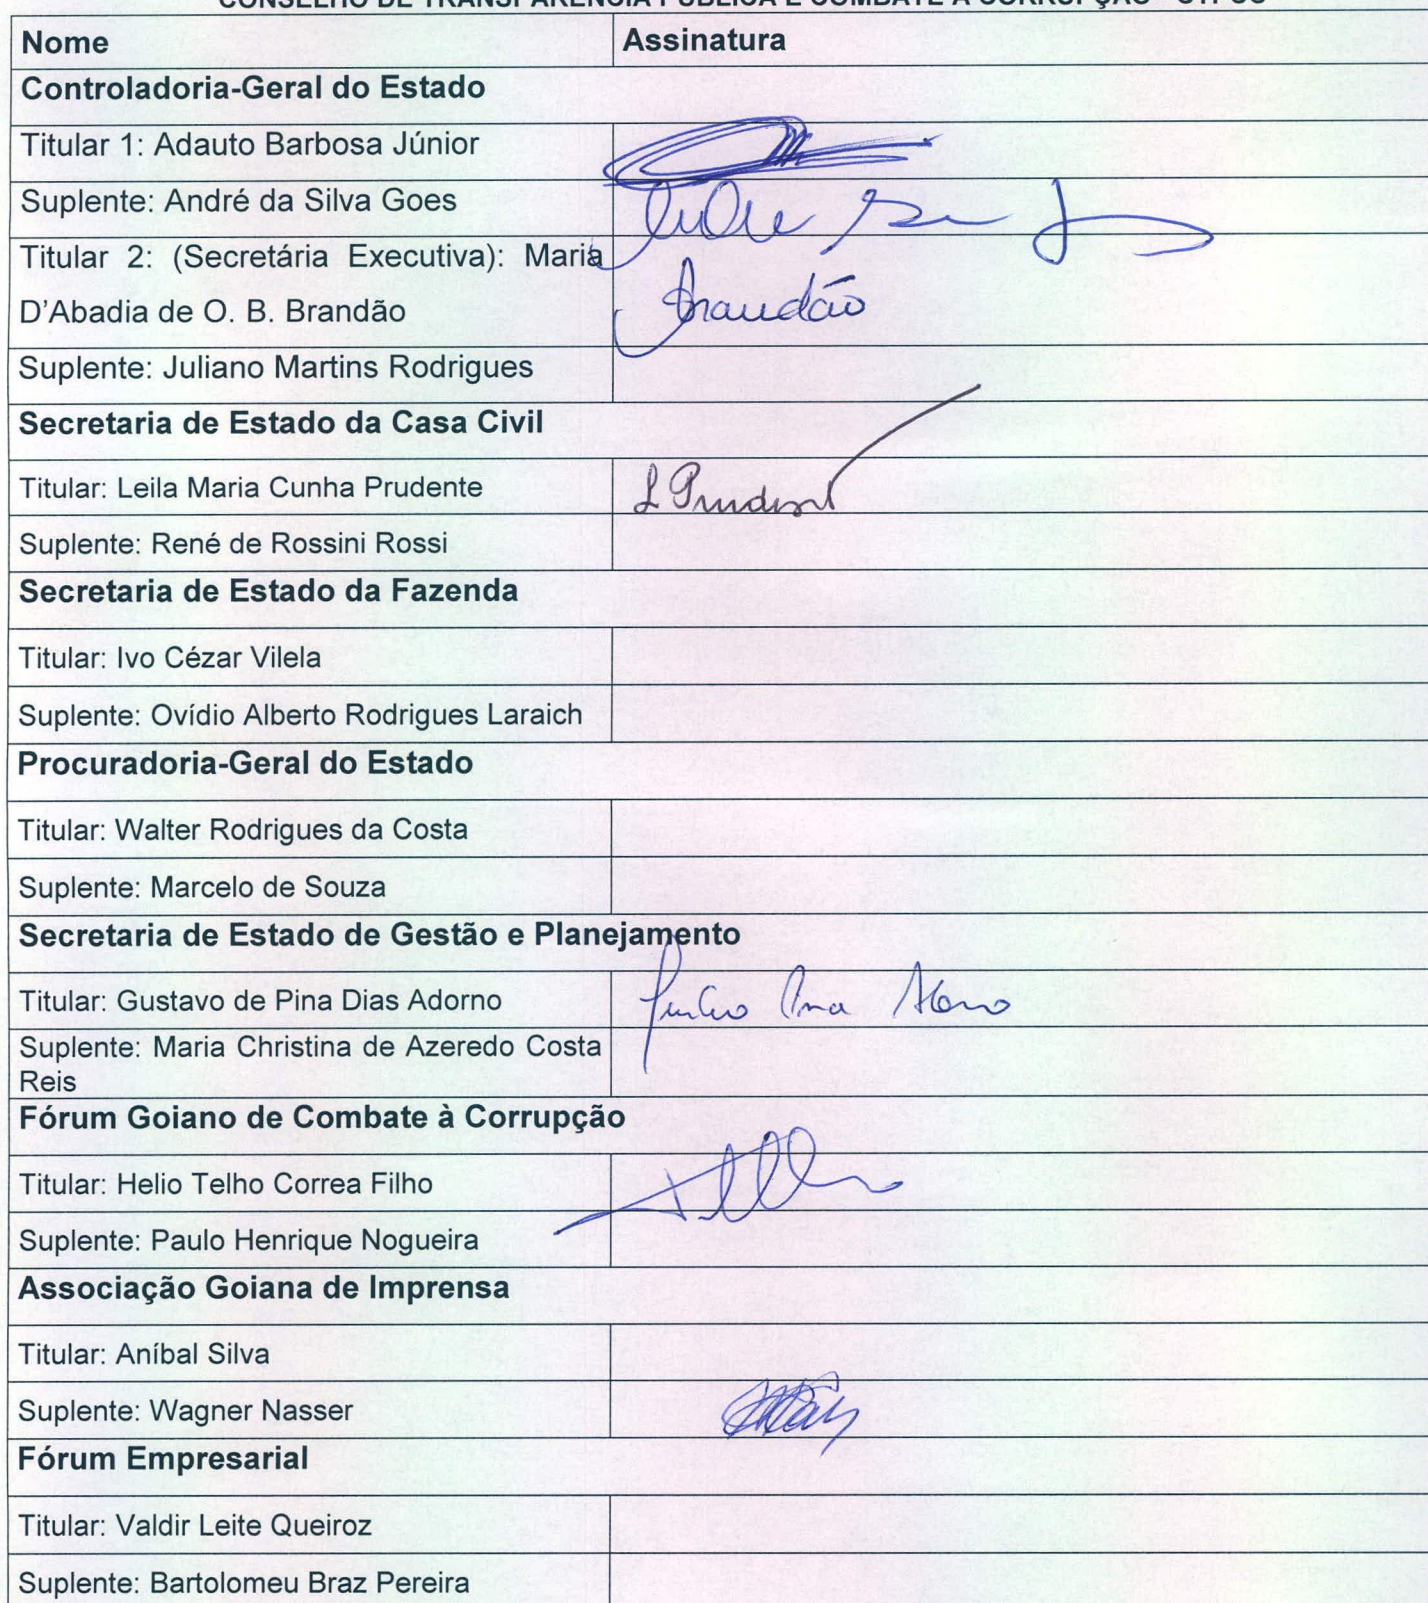 Nome Assinatura
Controladoria-Geral do Estado
Titular 1: Adauto Barbosa Júnior
Suplente: André da Silva Goes
Titular 2: (Secretária Executiva): Maria
D'Abadia de O. B. Brandão
Brandão
Suplente: Juliano Martins Rodrigues
Secretaria de Estado da Casa Civil
Titular: Leila Maria Cunha Prudente
L Prudent
Suplente: René de Rossini Rossi
Secretaria de Estado da Fazenda
Titular: Ivo Cézar Vilela
Suplente: Ovídio Alberto Rodrigues Laraich
Procuradoria-Geral do Estado
Titular: Walter Rodrigues da Costa
Suplente: Marcelo de Souza
Secretaria de Estado de Gestão e Planejamento
Titular: Gustavo de Pina Dias Adorno
Suplente: Maria Christina de Azeredo Costa
Reis
Fórum Goiano de Combate à Corrupção
Titular: Helio Telho Correa Filho
Suplente: Paulo Henrique Nogueira
Associação Goiana de Imprensa
Titular: Aníbal Silva
Suplente: Wagner Nasser
Fórum Empresarial
Titular: Valdir Leite Queiroz
Suplente: Bartolomeu Braz Pereira